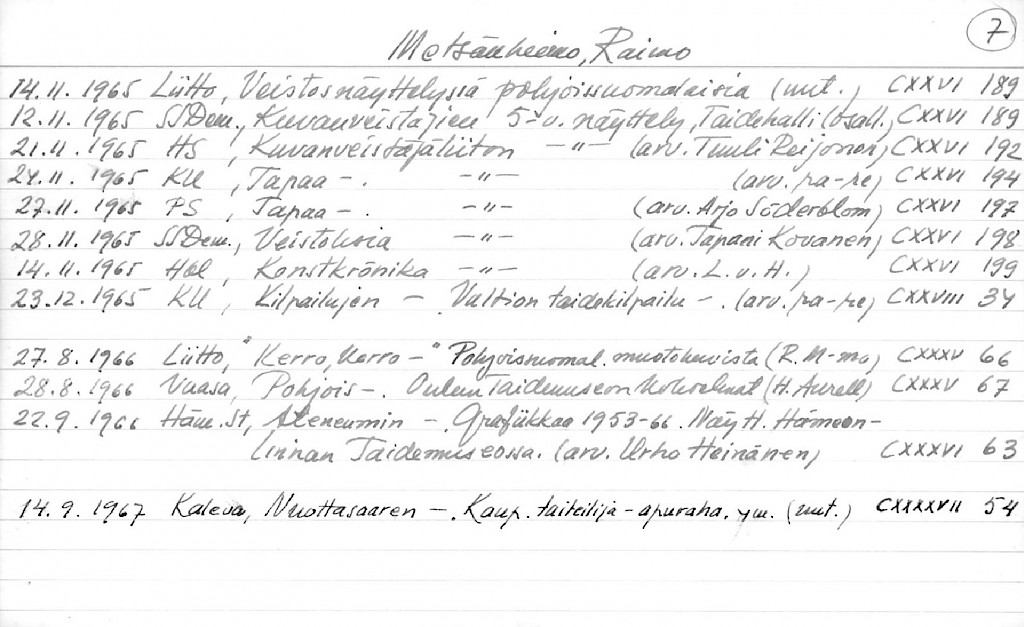 7
Metsänheimo, Raimo
14.11.1965 Liitto, Veistosnäyttelyssä pohjoissuomalaisia (mt.) CXXVI 189
12.11.1965 SSDem., Kuvanveistäjien 5-v. näyttely, Taidehalli (osall.) CXXVI 189
21.11.1965 HS, Kuvanveistäjäliiton —"— (arv. Tuuli Reijonen) CXXVI 192
24.11.1965 KU, Tapaa-. —"— (arv. ra-re) CXXVI 194
27.11.1965 PS, Tapaa-. —"— (arv. Arjo Söderblom) CXXVI 197
28.11.1965 SSDem., Veistoksia —"— (arv. Tapani Kovanen) CXXVI 198
14.11.1965 Hbl, Konstkrönika —"— (arv. L.v.H.) CXXVI 199
23.12.1965 KU, Kilpailujen - Valtion taidekilpailu -. (arv. ra-re) CXXVIII 34
27.8.1966 Liitto, "Kerro, kerro -" Pohjoissuomal. muotokuvista (R. M-mo) CXXXV 66
28.8.1966 Vaasa, Pohjois-. Oulun Taidemuseon kokoelmat (H. Aurell) CXXXV 67
22.9.1966 Häm.St, Ateneumin -. Grafiikkaa 1953-66. Näytt. Hämeen-
linnan Taidemuseossa. (arv. Urho Heinänen) CXXXVI 63
14.9.1967 Kaleva, Nuottasaaren -. Kaup. taiteilija-apuraha, ym. (mt.) CXXXXVII 54